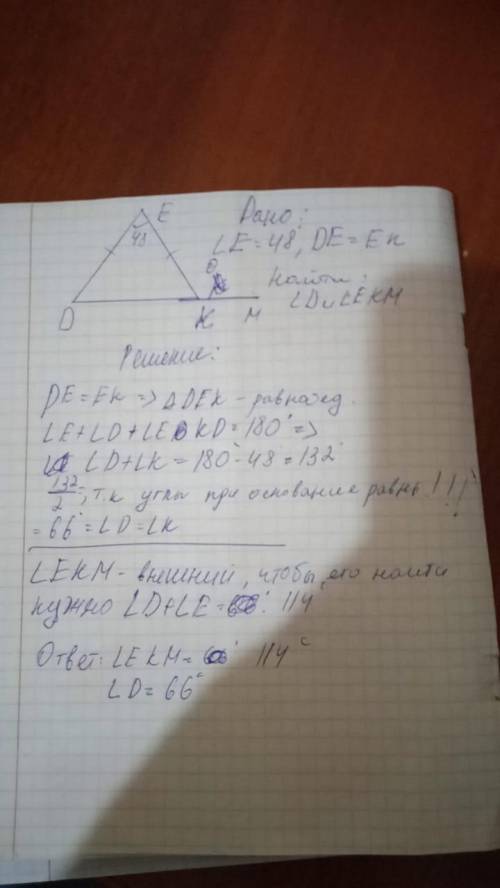 E
48
Дано:
∠E = 48, DE = EK
Найти:
∠D и ∠EKM
D
K
M
Решение:
DE = EK => △DEK - равнобед.
∠E + ∠D + ∠EKD = 180° =>
∠D + ∠K = 180° - 48 = 132°
132/2; т.к углы при основание равны!!!
= 66° = ∠D = ∠K
∠EKM - внешний, чтобы его найти
нужно ∠D + ∠E = 114
Ответ: ∠EKM = 114°
∠D = 66°